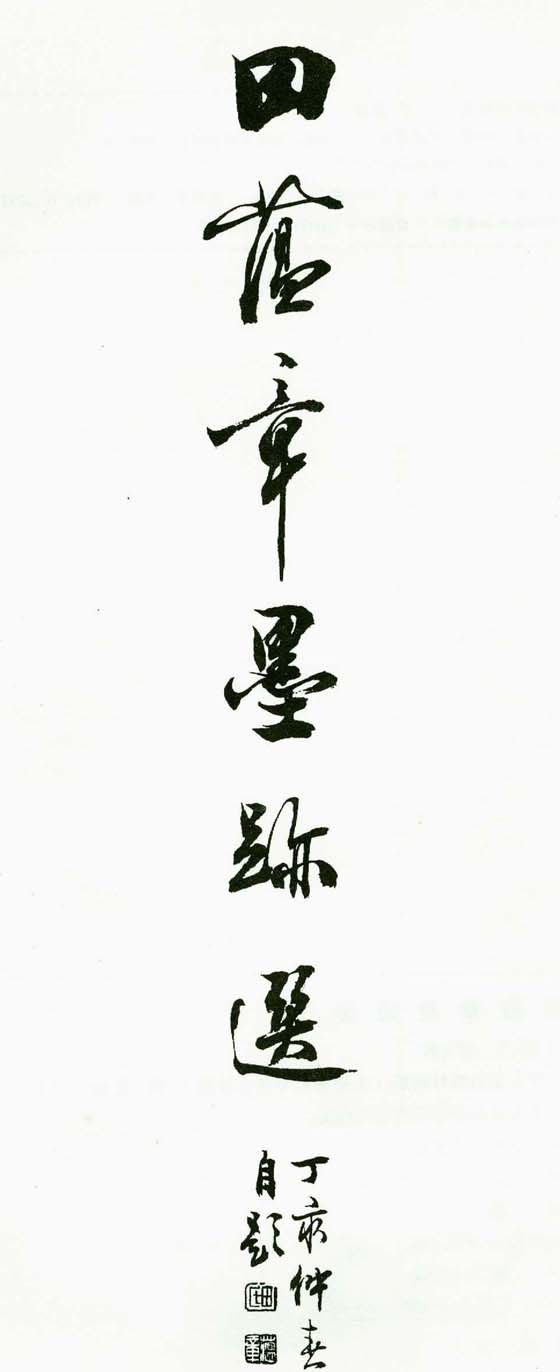 田蘊章墨跡選
丁亥仲春
自題